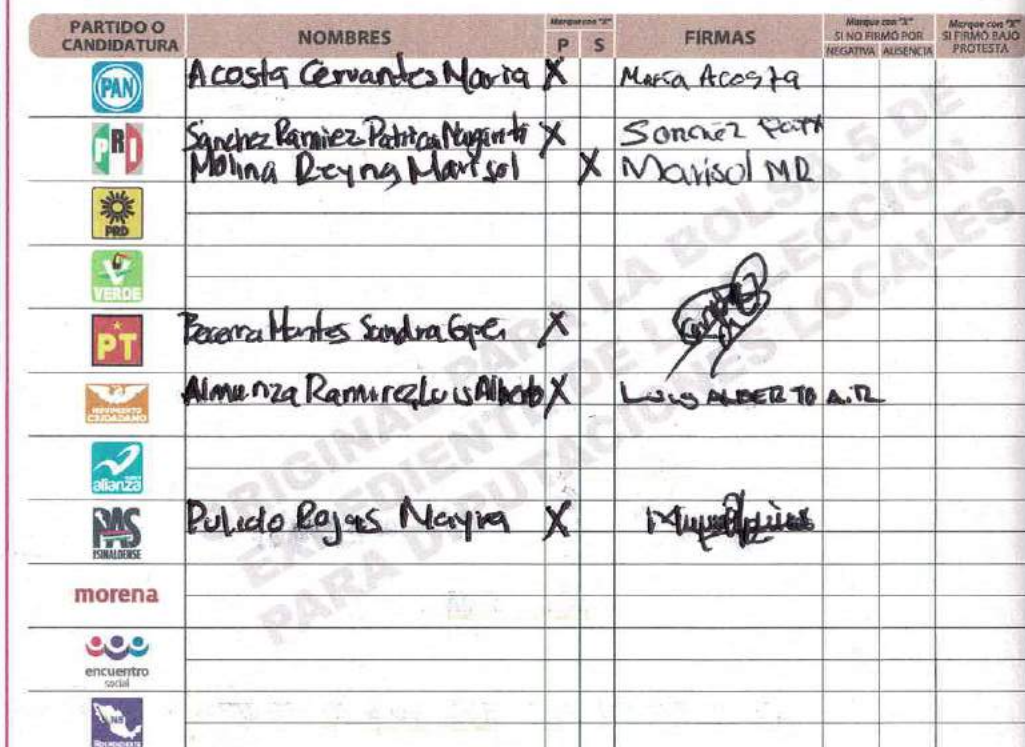 PARTIDO O CANDIDATURA NOMBRES Marque con "X" P S FIRMAS Marque con "X" SI NO FIRMÓ POR NEGATIVA AUSENCIA Marque con "X" SI FIRMÓ BAJO PROTESTA
PAN Acosta Cervantes Maria X Maria Acosta
PRI Sanchez Ramirez Patricia X Sanchez
Molina Reyna Marisol X Marisol MR
PRD
VERDE
PT Becerra Montes Sandra Gpe. X
MOVIMIENTO CIUDADANO Almanza Ramirez Luis Alberto X LUIS ALBERTO A.R.
alianza
PAS SINALOENSE Pulido Rojas Mayra X
morena
encuentro social
ORIGINAL PARA LA BOLSA 5 DE
EXPEDIENTE DE LA ELECCIÓN
PARA DIPUTACIONES LOCALES